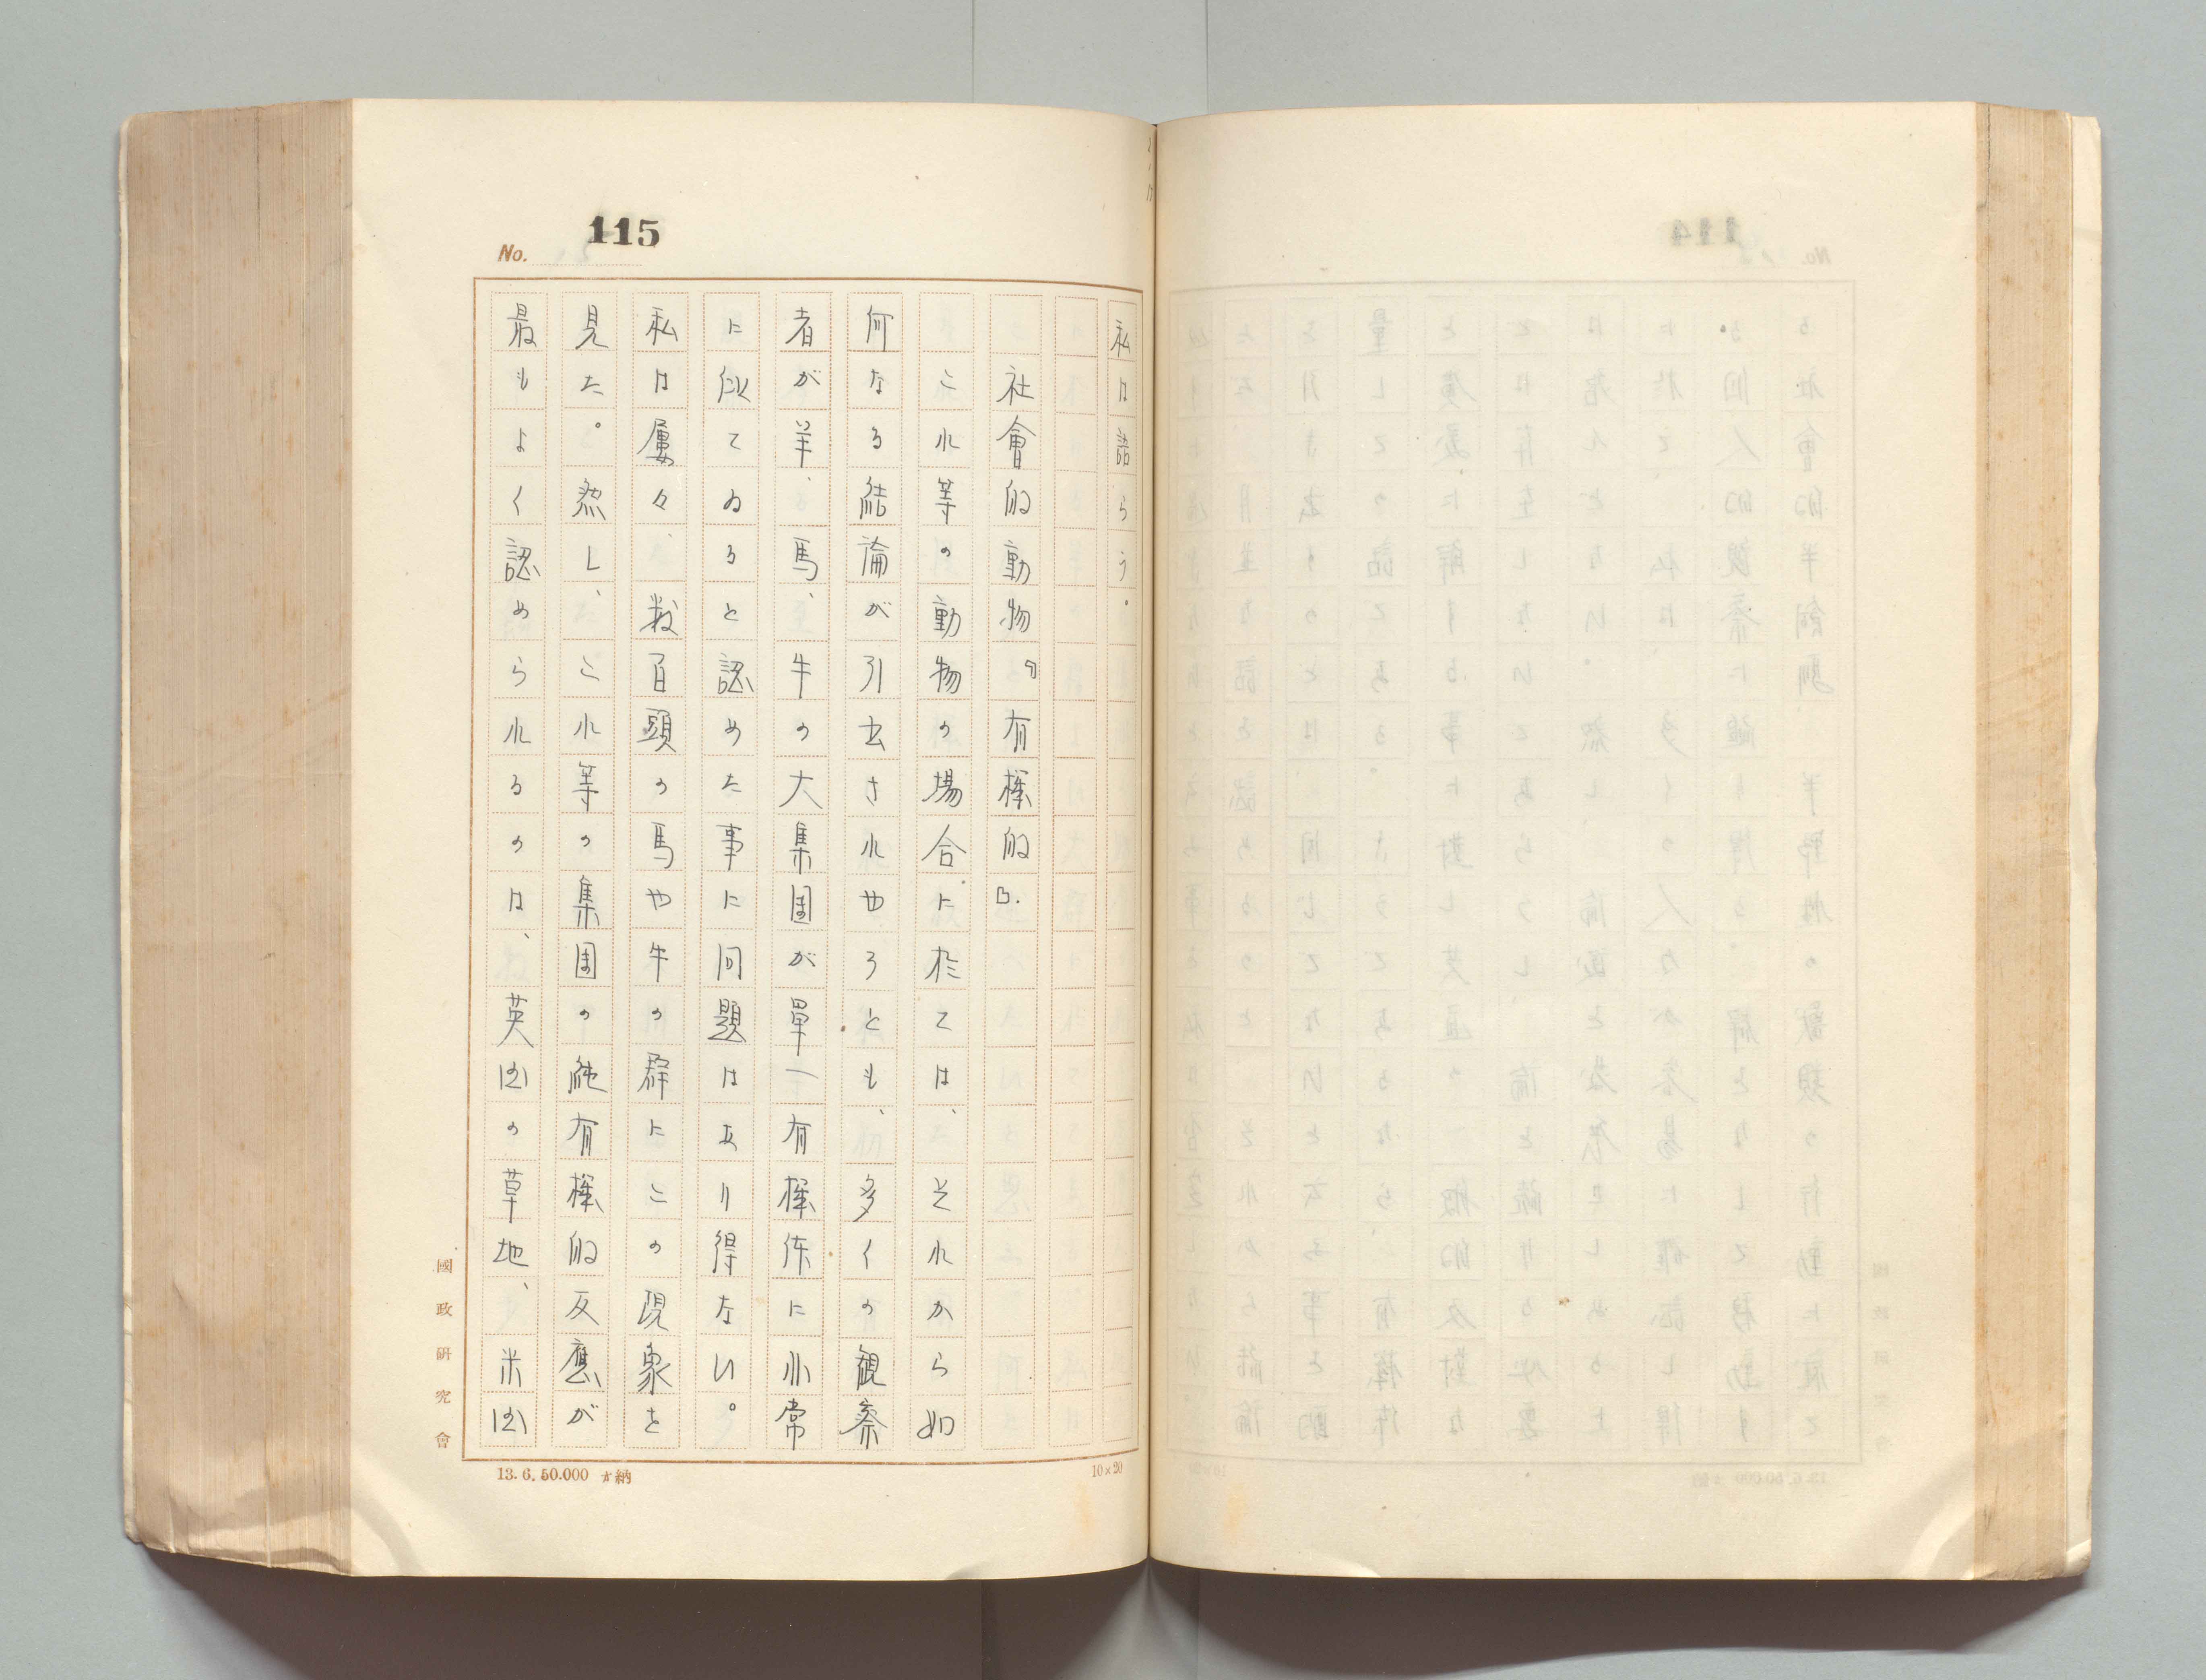 115
No.
私は語らう。
社會的動物の有機的B.
これ等の動物の場合に於ては、それから如
何なる結論が引去されやろとも、多くの観察
者が羊、馬、牛の大集團が單一有機体に非常
に似てゐると認めた事に问題はあり得ない。
私は屢々、数百頭の馬や牛の群にこの現象を
見た。然し、これ等の集團の純有機的反應が
最もよく認められるのは、英国の草地、米国
國政研究會
13.6.50.000 納
10×20